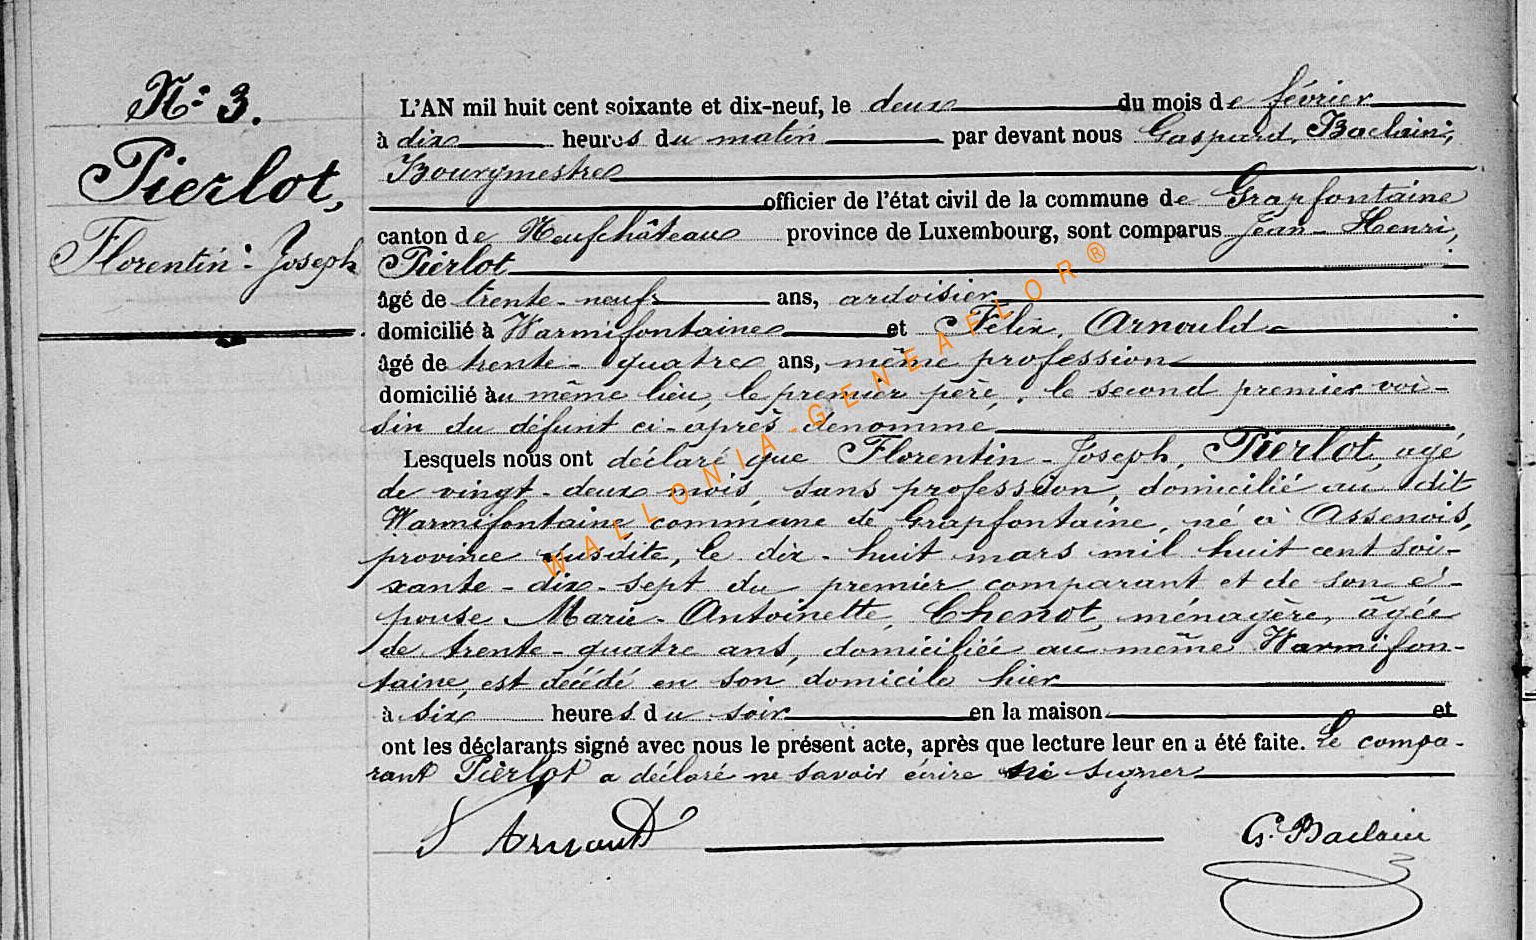 N° 3.
Pierlot,
Florentin-Joseph
L'AN mil huit cent soixante et dix-neuf, le deux du mois de février
à dix heures du matin par devant nous Gaspard, Baclain,
Bourgmestre
officier de l'état civil de la commune de Grapfontaine
canton de Neufchâteau province de Luxembourg, sont comparus Jean-Henri,
Pierlot
âgé de trente-neuf ans, ardoisier
domicilié à Warmifontaine et Félix, Arnould
âgé de trente-quatre ans, même profession
domicilié au même lieu, le premier père, le second premier voi-
sin du défunt ci-après dénommé
Lesquels nous ont déclaré que Florentin-Joseph, Pierlot, agé
de vingt-deux mois, sans profession, domicilié au dit
Warmifontaine commune de Grapfontaine, né à Assenois,
province susdite, le dix-huit mars mil huit cent soi-
xante-dix-sept du premier comparant et de son é-
pouse Marie-Antoinette, Chenot, ménagère, âgée
de trente-quatre ans, domiciliée au même Warmifon-
taine, est décédé en son domicile hier
à six heures du soir en la maison et
ont les déclarants signé avec nous le présent acte, après que lecture leur en a été faite. Le compa-
rant Pierlot a déclaré ne savoir écrire ni signer
Arnould G. Baclain
WALLONIA-GENEAFLOR®